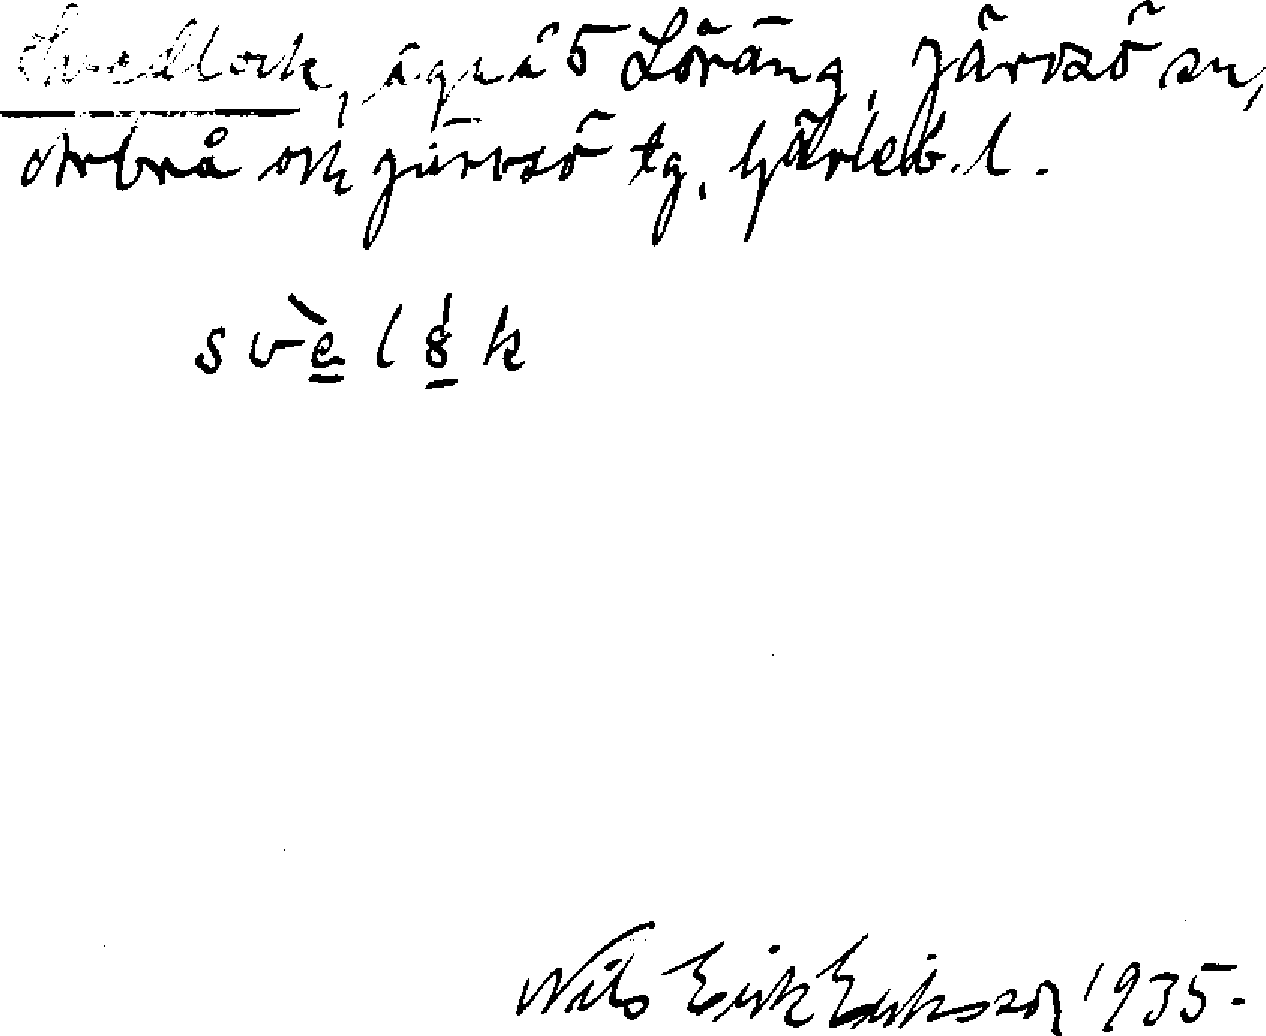 Svedlock, äga å 5 Löräng, Järvsö sn,
Arbrå och Järvsö tg, Gävleb. l.
svèlök
Nils Erik Eriksson 1935.